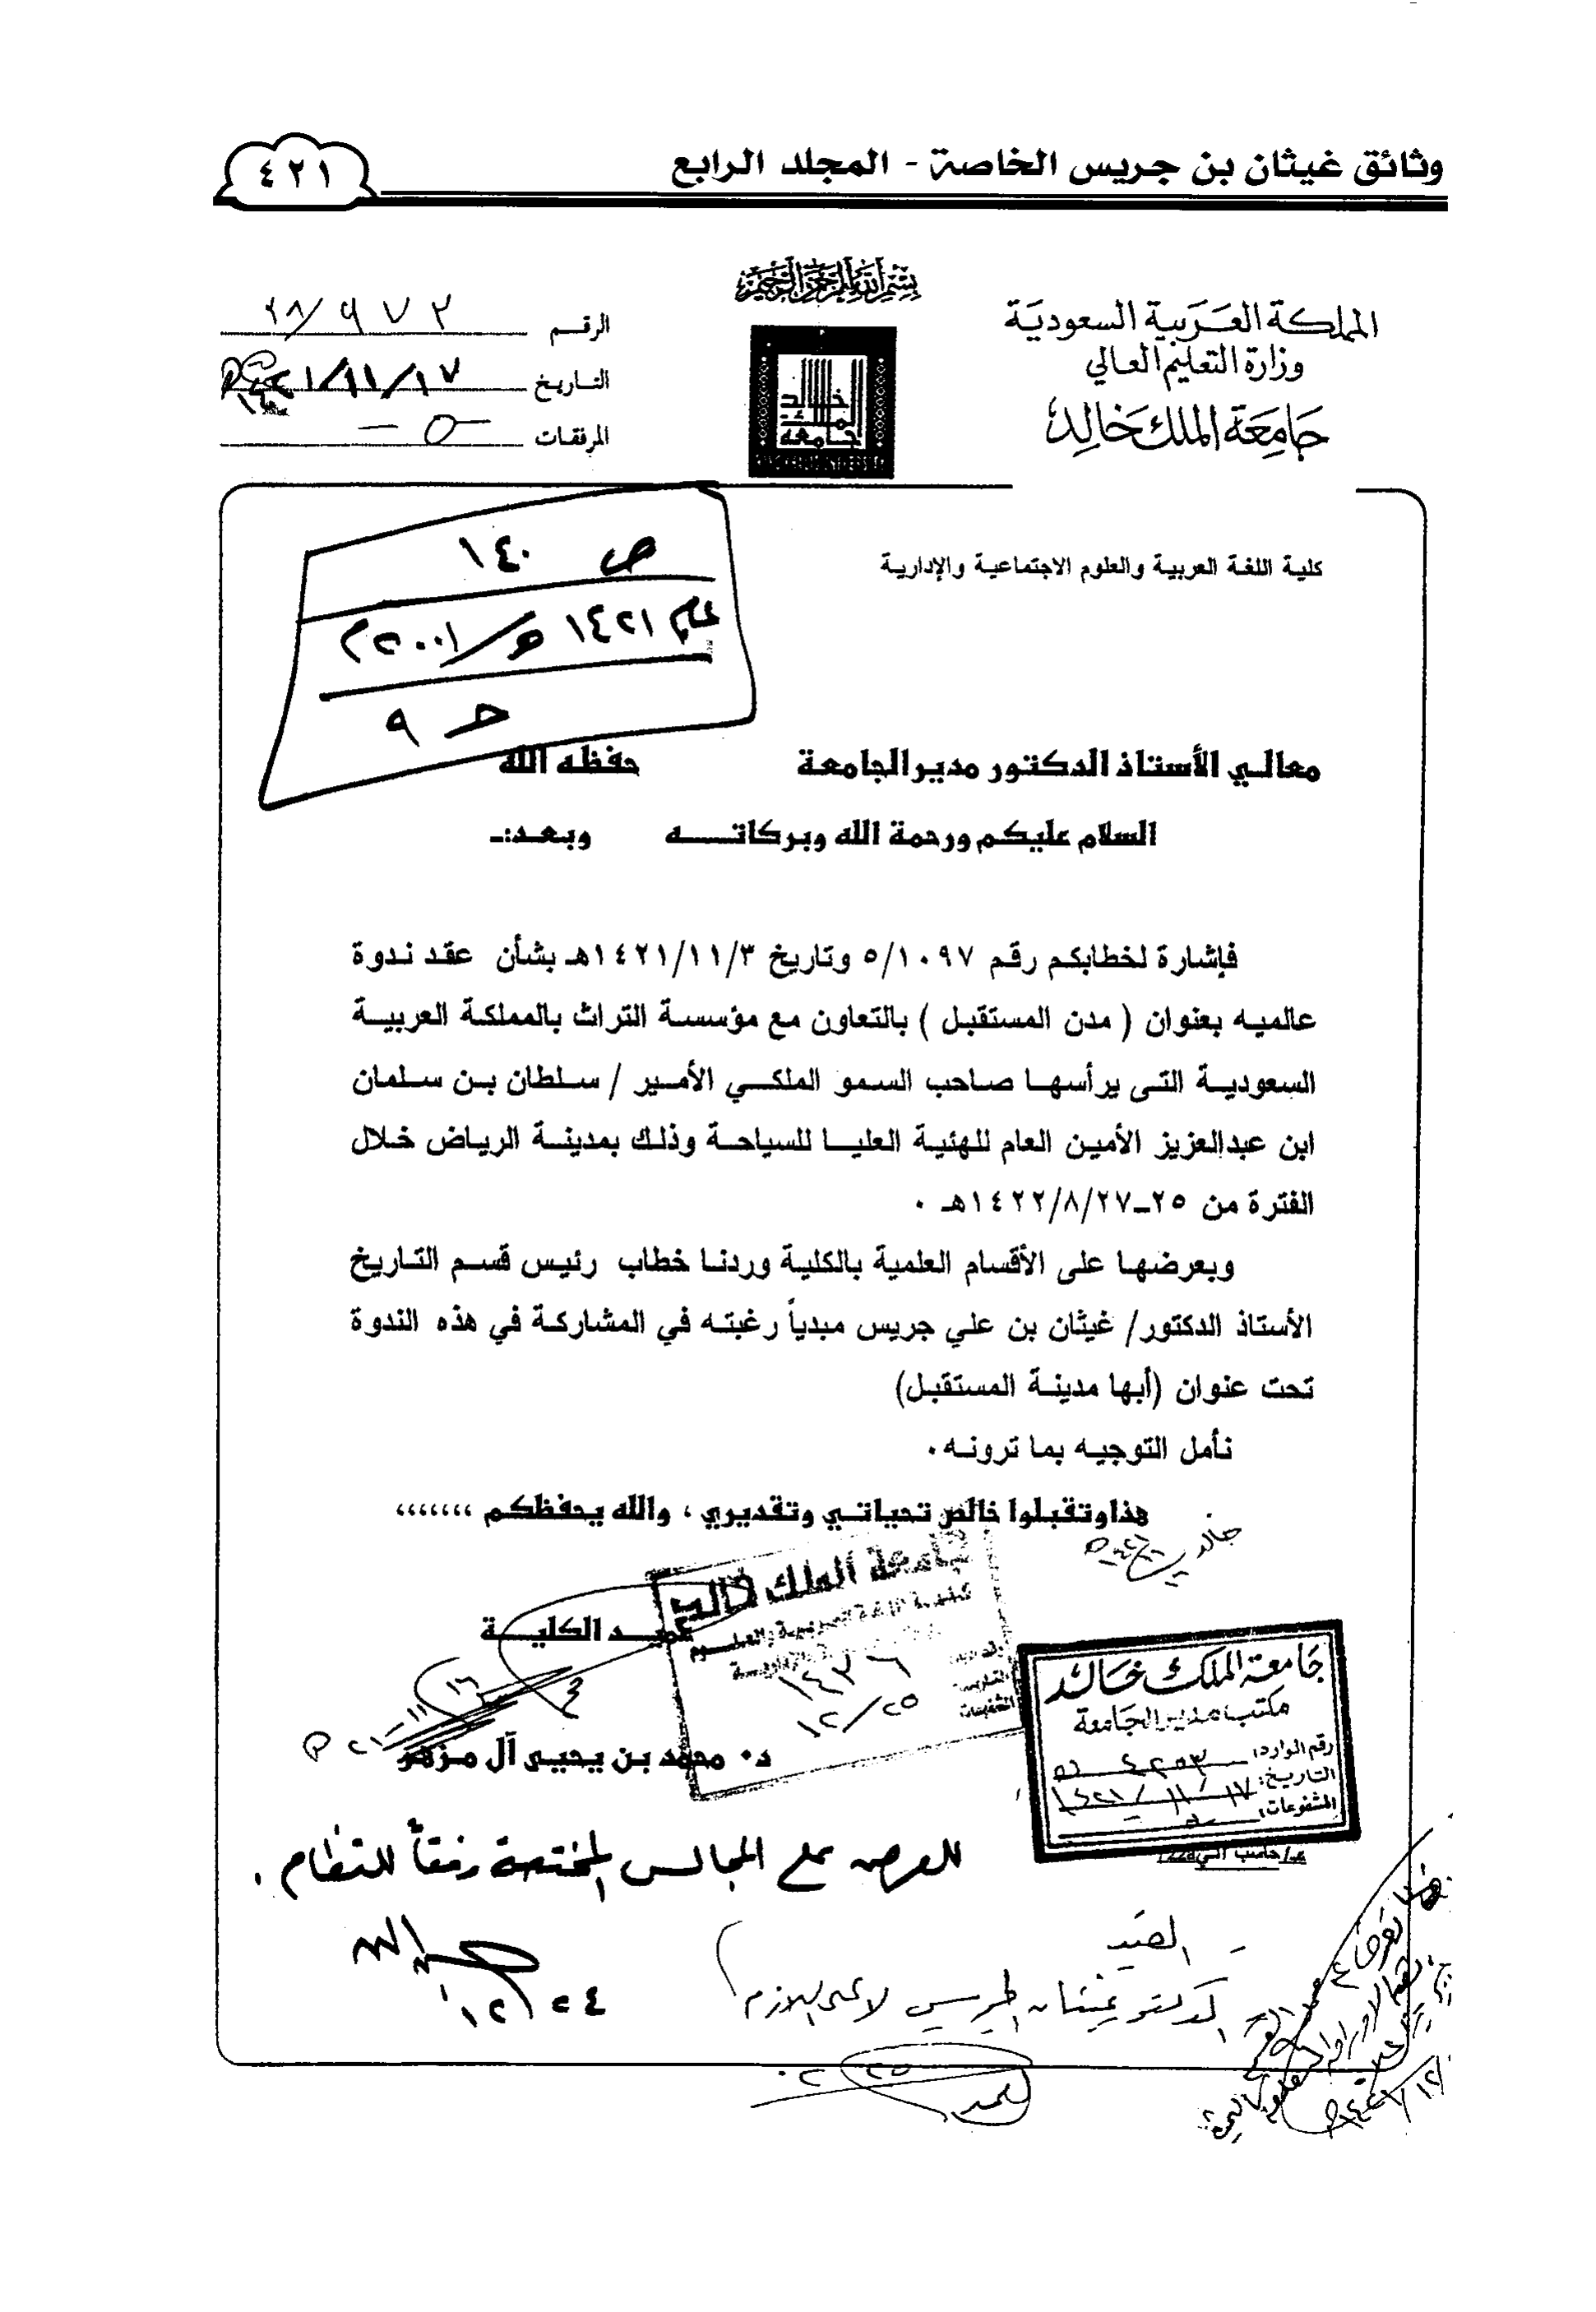 وثائق غيثان بن جريس الخاصة - المجلد الرابع
٤٢١
بسم الله الرحمن الرحيم
المملكة العربية السعودية
وزارة التعليم العالي
جامعة الملك خالد
الرقم ٢٨/٩٧٢
التاريخ ١٧/١١/١٤٢١هـ
المرفقات
كلية اللغة العربية والعلوم الاجتماعية والإدارية
ص ١٤٠
عام ١٤٢١هـ/٢٠٠١م
حـ ٩
معالي الأستاذ الدكتور مدير الجامعة حفظه الله
السلام عليكم ورحمة الله وبركاتـــه وبعد:ـ
فإشارة لخطابكم رقم ٥/١٠٩٧ وتاريخ ١٤٢١/١١/٣هـ بشأن عقد ندوة
عالميه بعنوان ( مدن المستقبل ) بالتعاون مع مؤسسة التراث بالمملكة العربية
السعودية التى يرأسها صاحب السمو الملكي الأمير / سلطان بن سلمان
ابن عبدالعزيز الأمين العام للهئية العليا للسياحة وذلك بمدينة الرياض خلال
الفترة من ٢٥ـ١٤٢٢/٨/٢٧هـ .
وبعرضها على الأقسام العلمية بالكلية وردنا خطاب رئيس قسم التاريخ
الأستاذ الدكتور/ غيثان بن علي جريس مبدياً رغبته في المشاركة في هذه الندوة
تحت عنوان (أبها مدينة المستقبل)
نأمل التوجيه بما ترونه.
هذا وتقبلوا خالص تحياتي وتقديري ، والله يحفظكم ،،،،،،،
جامعة الملك خالد
١٤٣٦
١٢/٢٥
عميد الكلية
د. محمد بن يحيى آل مزهر
جامعة الملك خالد
مكتب مدير الجامعة
رقم الوارد:
التاريخ: ١٧/١١/١٤٢١
المشفوعات:
للعرض على المجالس المختصة وفقاً للنظام .
١٢/٢٤
الدكتور غيثان الجريس لاعمال اللازم